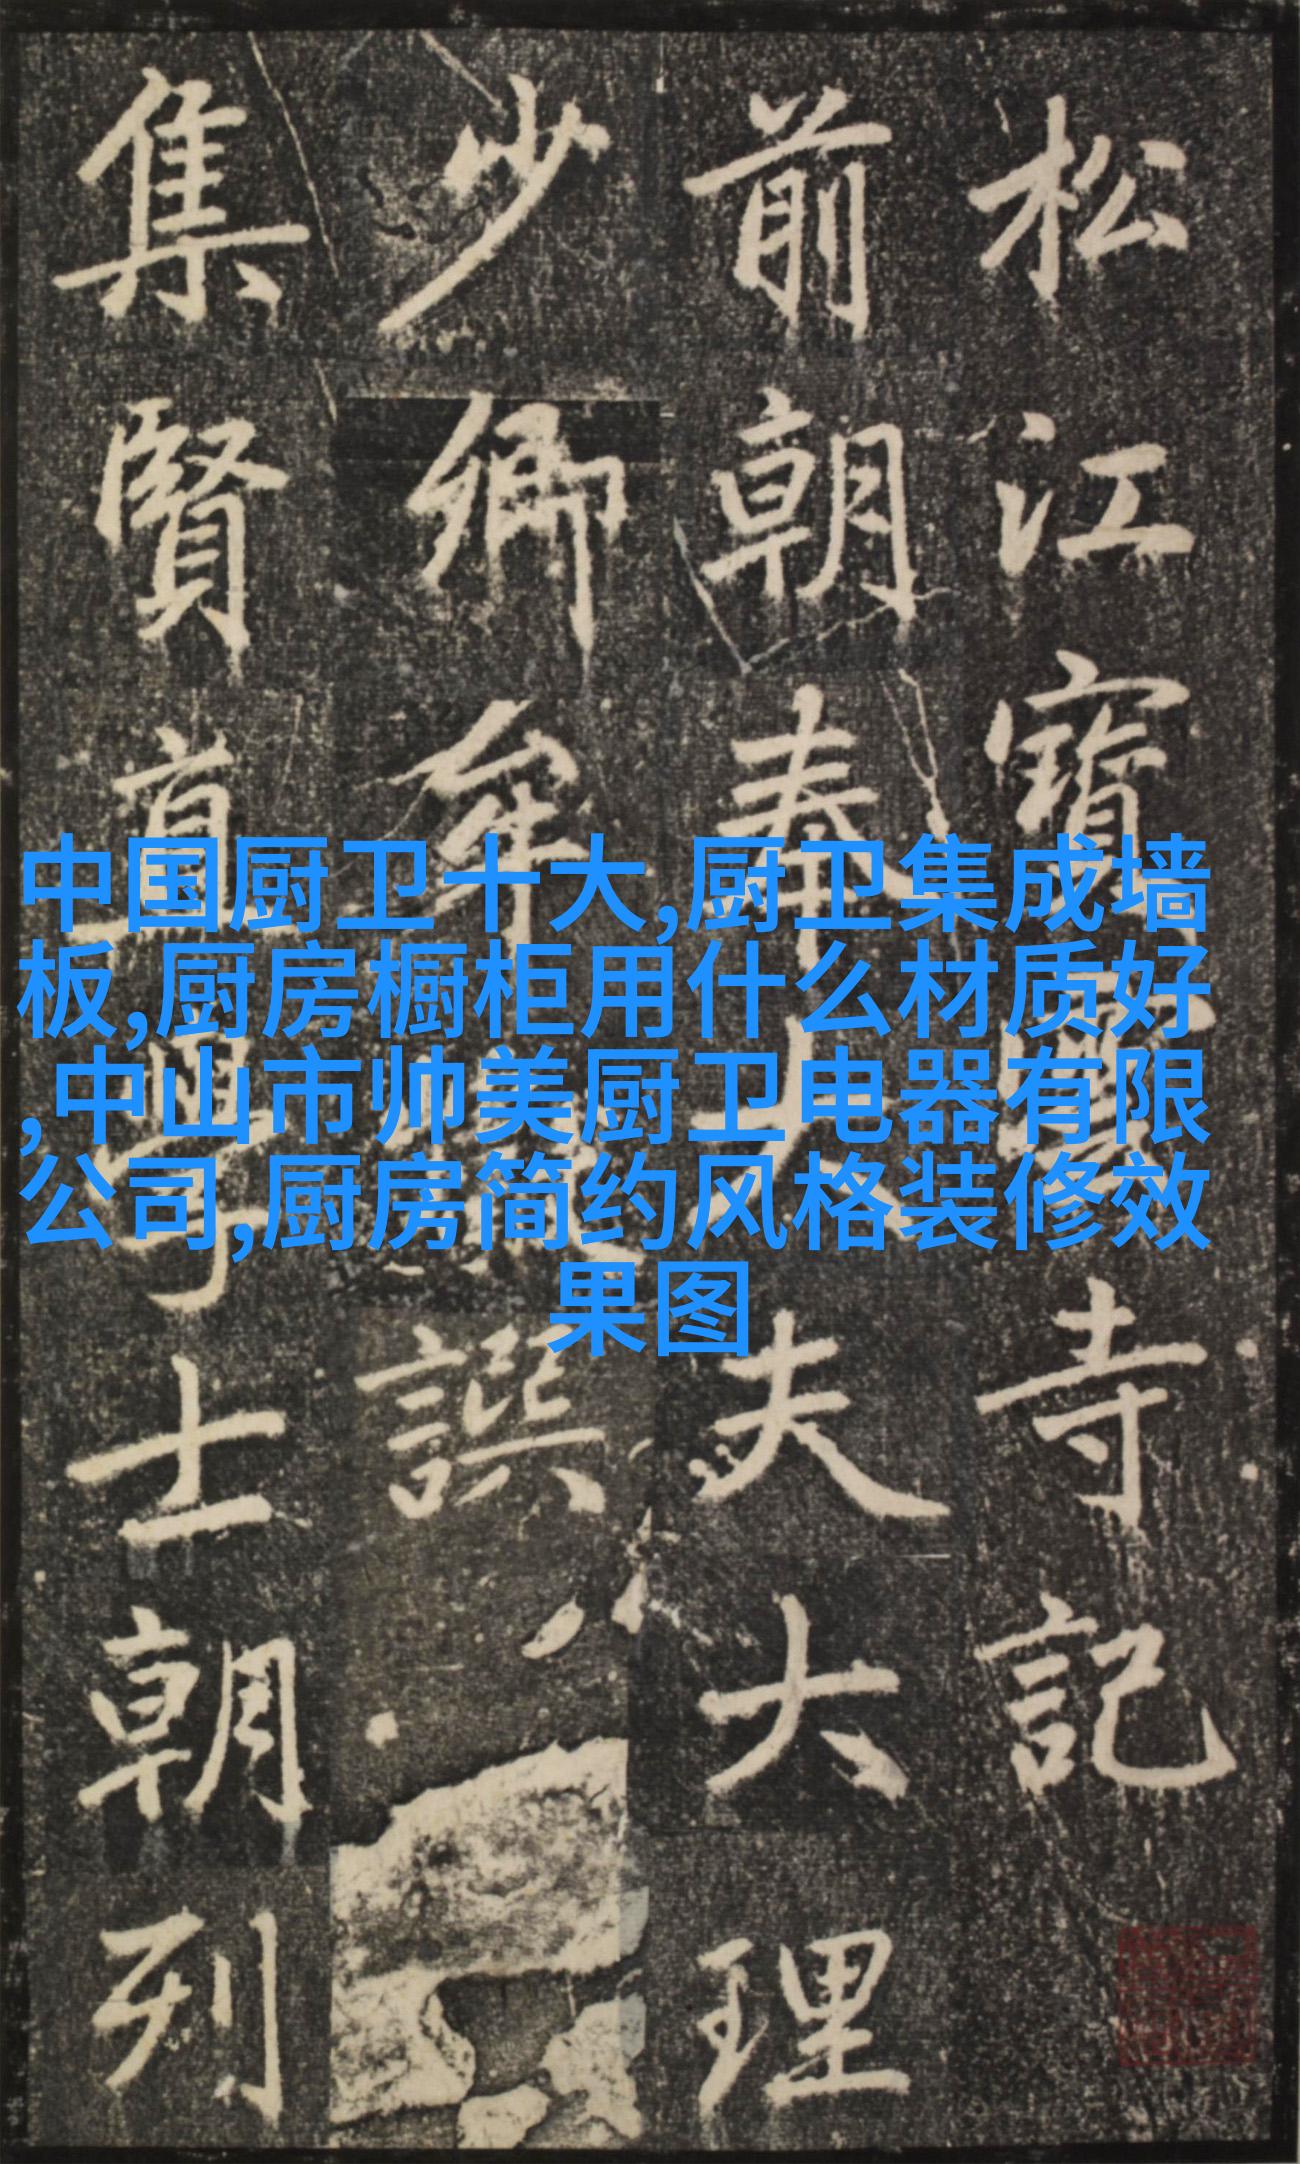 松江寳雲寺記
前朝奉大夫大理
少卿牟巘譔
集賢直學士朝列
中国厨卫十大,厨卫集成墙
板,厨房橱柜用什么材质好
,中山市帅美厨卫电器有限
公司,厨房简约风格装修效
果图